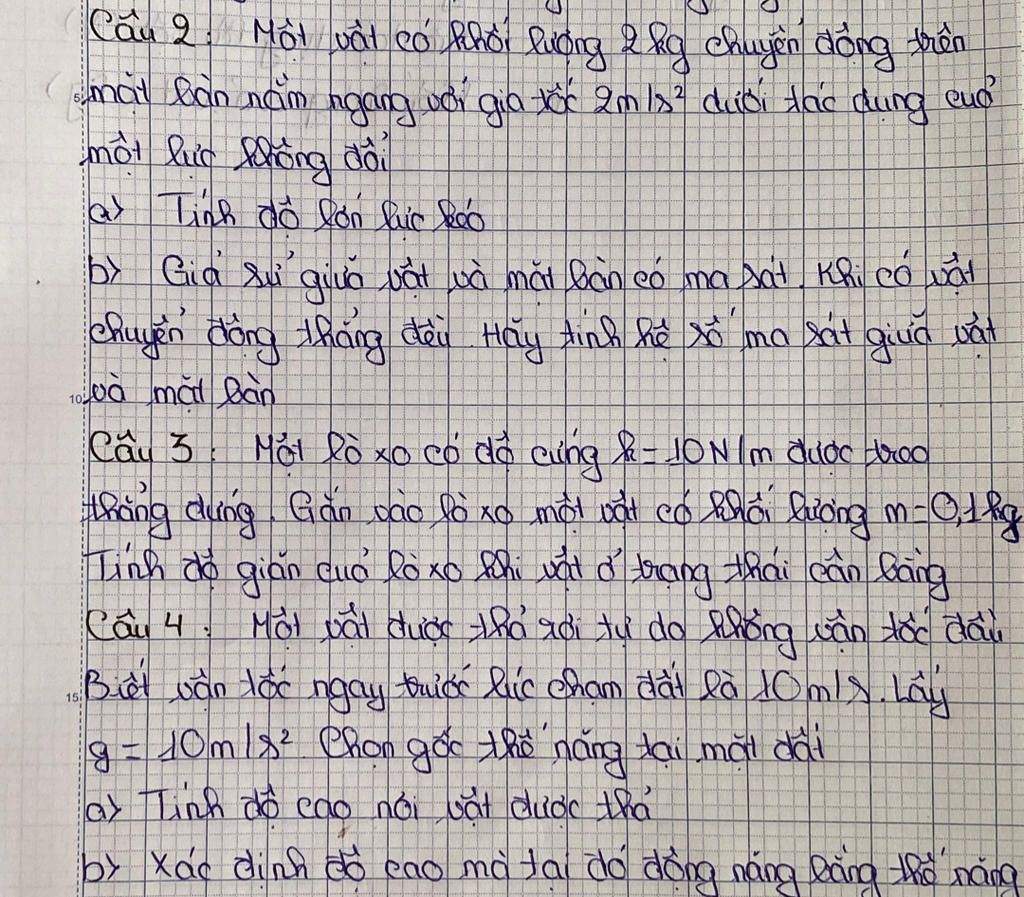 Câu 2: Một vật có khối lượng 2kg chuyển động trên
5 mặt bàn nằm ngang với gia tốc 2m/s² dưới tác dụng của
một lực không đổi
a) Tính độ lớn lực kéo
b) Giả sử giữa vật và mặt bàn có ma sát. Khi có vật
chuyển động thẳng đều. Hãy tính hệ số ma sát giữa vật
10 và mặt bàn
Câu 3: Một lò xo có độ cứng k = 10N/m được treo
thẳng đứng. Gắn vào lò xo một vật có khối lượng m = 0,1kg
Tính độ giãn của lò xo khi vật ở trạng thái cân bằng
Câu 4: Một vật được thả rơi tự do không vận tốc đầu
15 Biết vận tốc ngay trước lúc chạm đất là 10m/s. Lấy
g = 10m/s² Chọn gốc thế năng tại mặt đất
a) Tính độ cao nơi vật được thả
b) Xác định độ cao mà tại đó động năng bằng thế năng